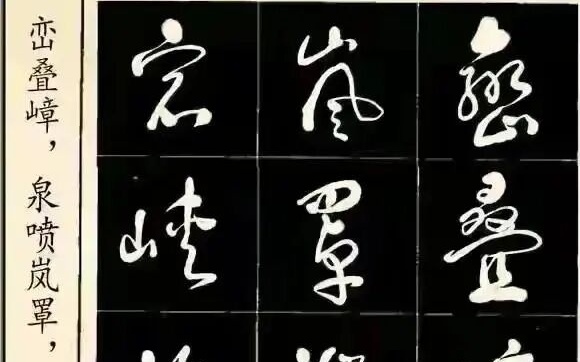 峦叠嶂，泉喷岚罩，
峦叠
岚罩
峡